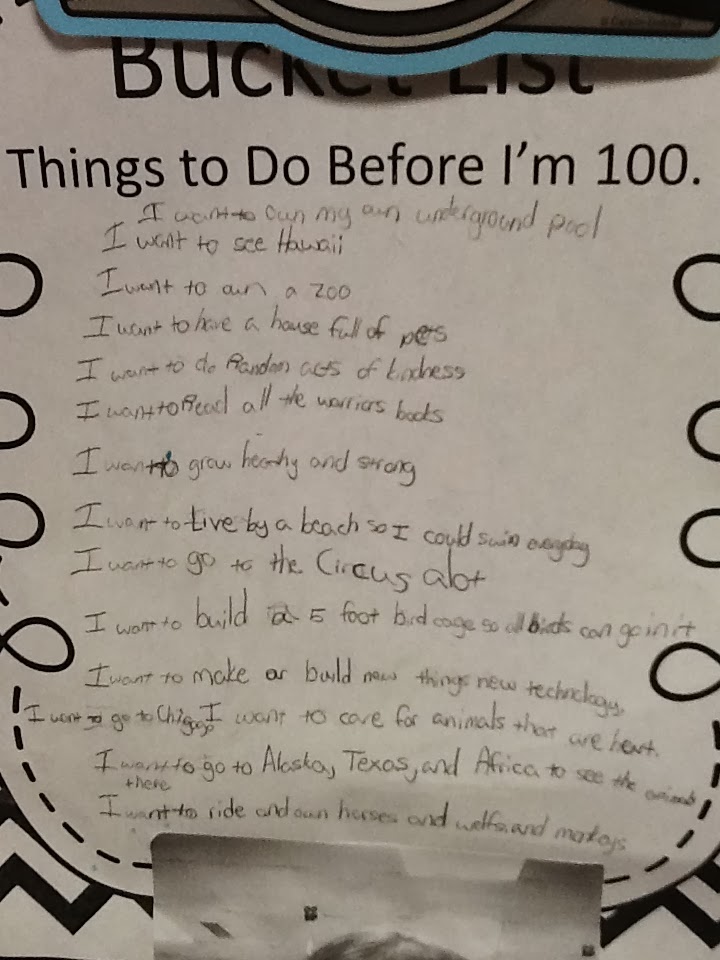 Bucket List
Things to Do Before I'm 100.
I want to own my own underground pool
I want to see Hawaii
I want to own a zoo
I want to have a house full of pets
I want to do Random acts of kindness
I want to Read all the warriors books
I want to grow healthy and strong
I want to Live by a beach so I could swim everyday
I want to go to the Circus alot
I want to build a 5 foot bird cage so all birds can go in it
I want to make or build new things new technology,
I want to go to Chigago I want to care for animals that are heart.
I want to go to Alaska, Texas, and Africa to see the animals
there
I want to ride and own horses and and monkeys